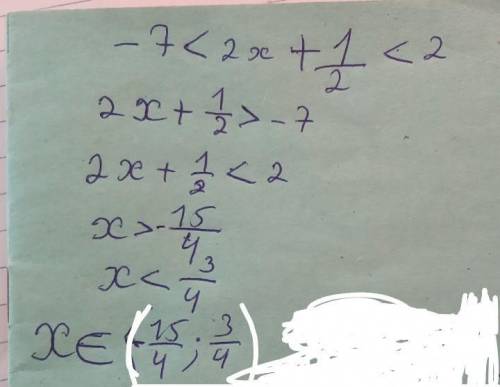 -7 < 2x + 1/2 < 2
2x + 1/2 > -7
2x + 1/2 < 2
x > -15/4
x < 3/4
x ∈ (-15/4; 3/4)